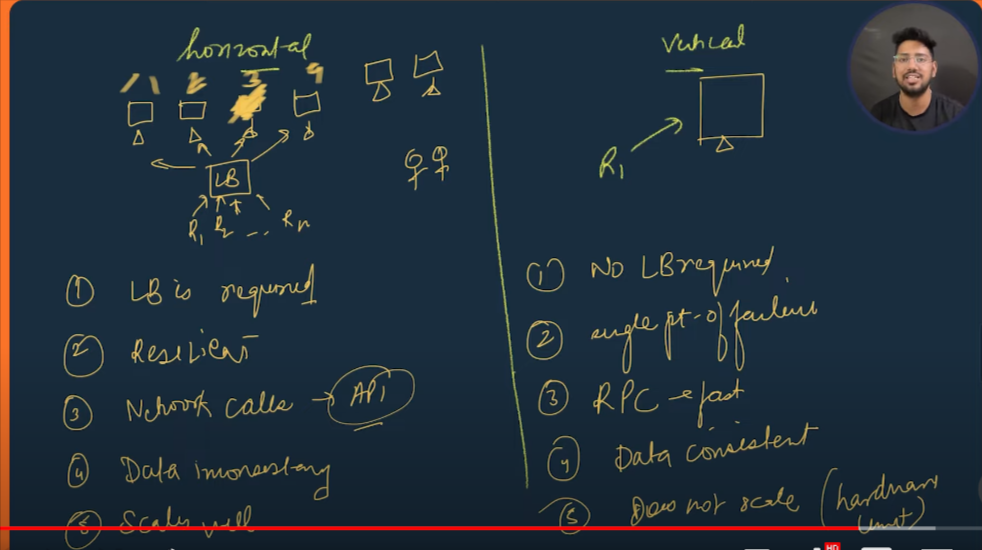 horizontal
1 2 3 4
LB
R1 R2 -- Rn
① LB is required
② Resilient
③ Network calls → API
④ Data inconsistency
⑤ Scales well
Vertical
R1
① NO LB required
② single pt. of failure
③ RPC → fast
④ Data consistent
⑤ Does not scale (hardware limit)
HD